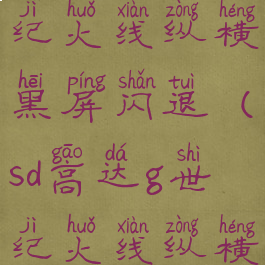 jì huǒ xiàn zòng héng
纪火线纵横
hēi píng shǎn tuì
黑屏闪退(
gāo dá shì
sd高达g世
jì huǒ xiàn zòng héng
纪火线纵横